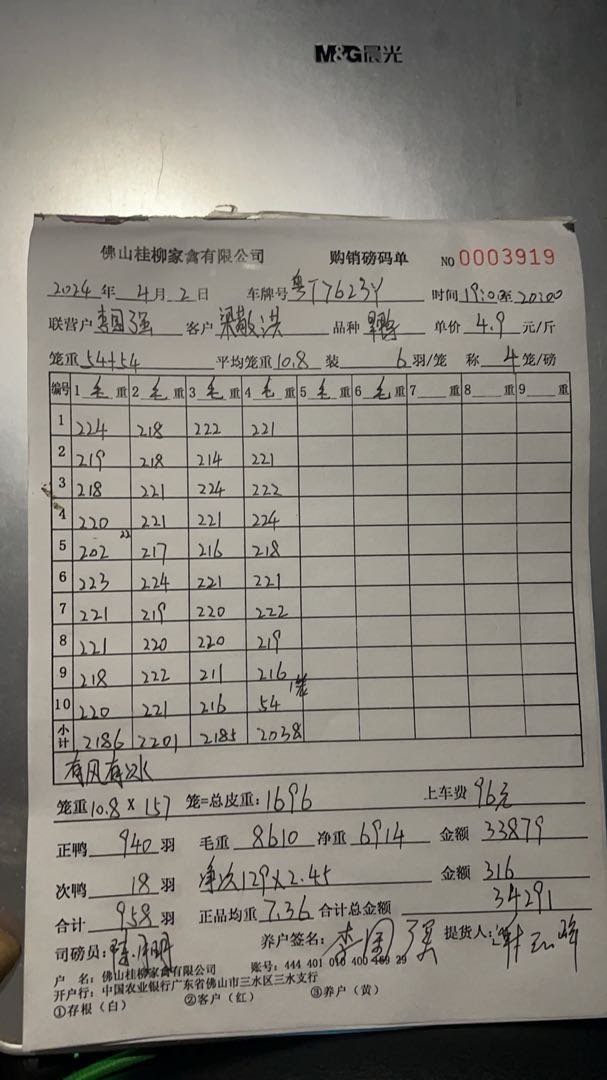 M&G晨光
佛山桂柳家禽有限公司 购销磅码单 NO 0003919
2024 年 4 月 2 日 车牌号 粤T7623Y 时间 19:00至20:00
联营户 李国强 客户 梁敬洪 品种 单价 4.9 元/斤
笼重 54+54 平均笼重 10.8 装 6 羽/笼 称 4 笼/磅
编号 1 毛 重 2 毛 重 3 毛 重 4 毛 重 5 毛 重 6 毛 重 7 重 8 重 9 重
1 224 218 222 221
2 219 218 214 221
3 218 221 224 222
4 220 221 221 224
5 202 22 217 216 218
6 223 224 221 221
7 221 219 220 222
8 221 220 220 219
9 218 222 211 216
10 220 221 216 54 1笼
小计 2186 2201 2185 2038
有风有水
笼重 10.8 × 157 笼=总皮重: 1696 上车费 96元
正鸭 940 羽 毛重 8610 净重 6914 金额 33879
次鸭 18 羽 净次129×2.45 金额 316
合计 958 羽 正品均重 7.36 合计总金额 34291
司磅员: 养户签名: 李国强 提货人:
户 名: 佛山桂柳家禽有限公司 账号: 444 401 010 400 469 29
开户行: 中国农业银行广东省佛山市三水区三水支行
①存根（白） ②客户（红） ③养户（黄）